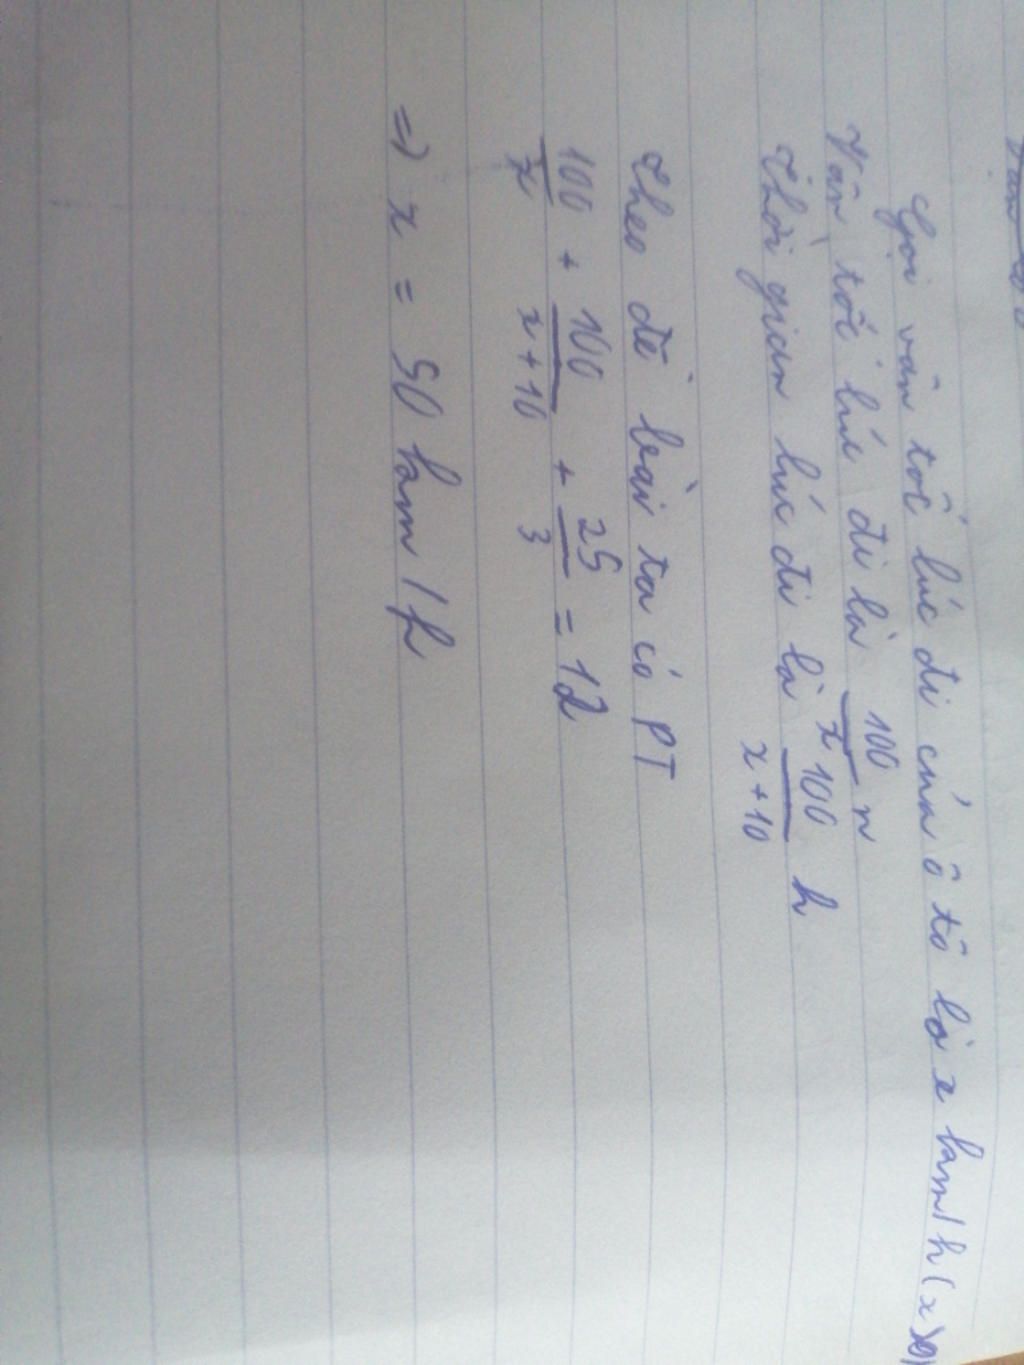 Gọi vân tốc lúc đi của ô tô là x km/h (x>0)
Vân tốc lúc đi là 100/x h
Thời gian lúc đi là 100/x+10 h
Theo đề bài ta có PT
100/x + 100/x+10 + 25/3 = 12
=> x = 50 km/h